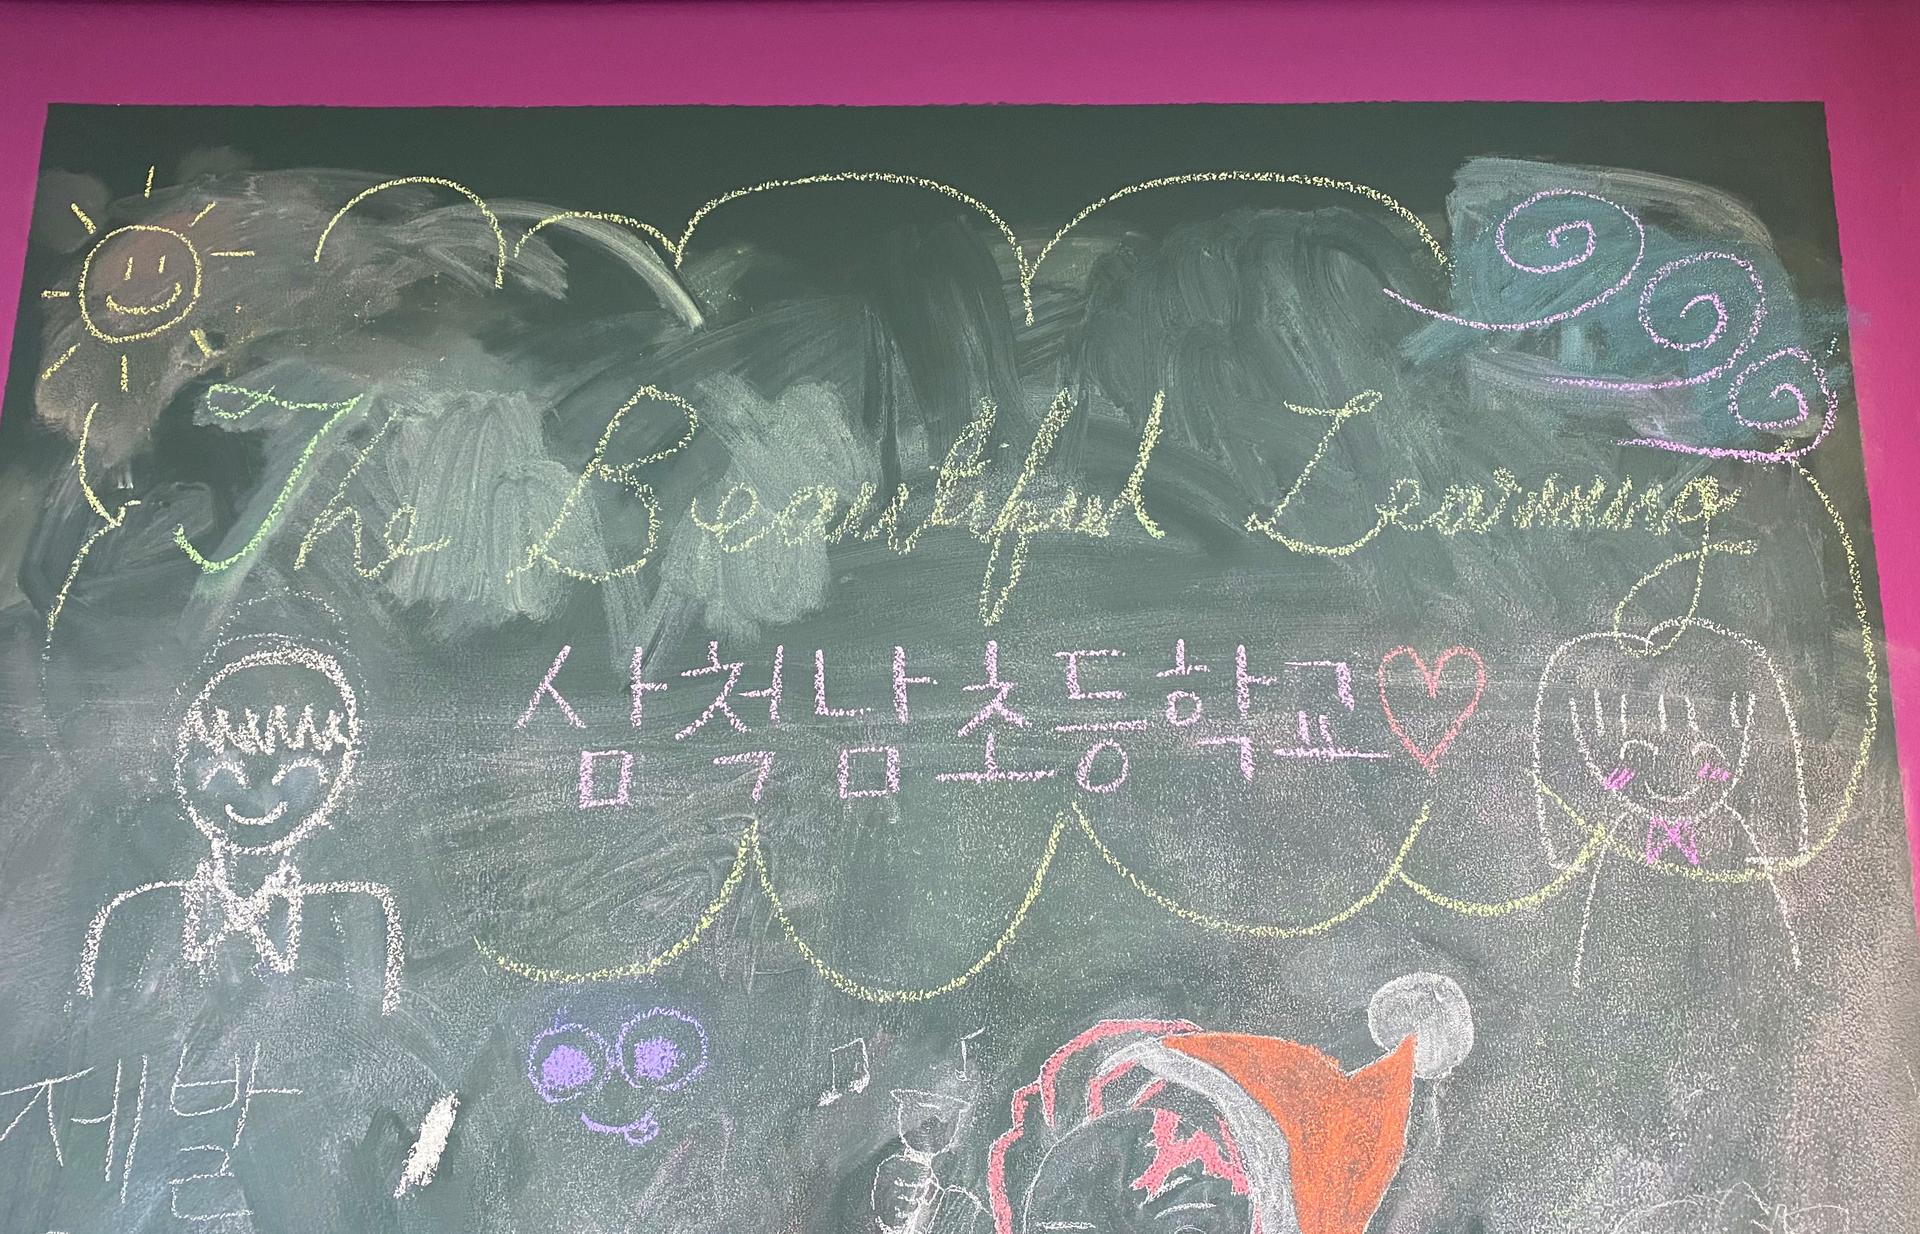 The Beautiful Learning
삼척남초등학교
제발